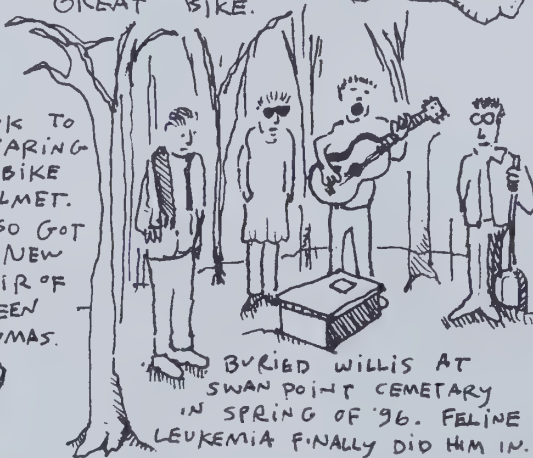 GREAT BIKE.
K TO
ARING
BIKE
LMET.
SO GOT
NEW
IR OF
EEN
MAS.
BURIED WILLIS AT
SWAN POINT CEMETARY
IN SPRING OF '96. FELINE
LEUKEMIA FINALLY DID HIM IN.